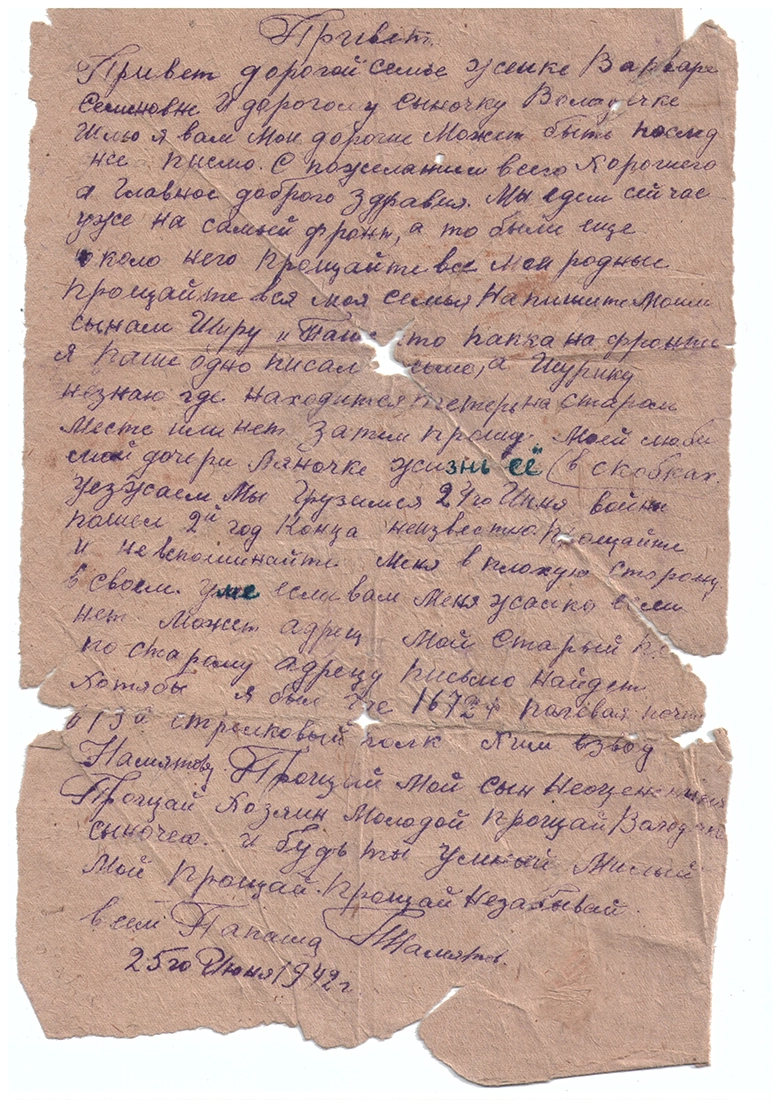 Привет
Привет дорогой семье женке Варваре
Семеновне и дорогому сыночку Володичке
Шлю я вам мои дорогие может быть послед
нее писмо. С пожеланием всего хорошего
а главное доброго здравия. Мы едем сейчас
уже на самый фронт, а то были еще
около него прощайте все мои родные
прощайте вся моя семья напишите моим
сынам Шуру и Паше что папка на фронте
я Паше одно писал сьмо, а Шурику
незнаю где находится теперь на старом
месте или нет. Затем прошу моей люби
мой дочери Ляночке жизнь её (в скобках.
уезжаем мы грузимся 24го Июня войны
пошел 2й год конца неизвестно прощайте
и невспоминайте меня в плохую сторону
в своем уме если вам меня жалко если
нет. Может адрец мой старый
по старому адрецу письмо найдет
хотябы я был где 1672 я полевая почта
стрелковый полк Хим взвод
Намятову Прощай мой сын неоцененный
Прощай хозяин молодой прощай Володичка
сыночек. и будь ты умный милый
мой прощай. прощай незабывай
всем Папаша Намятов
25го Июня 1942 г